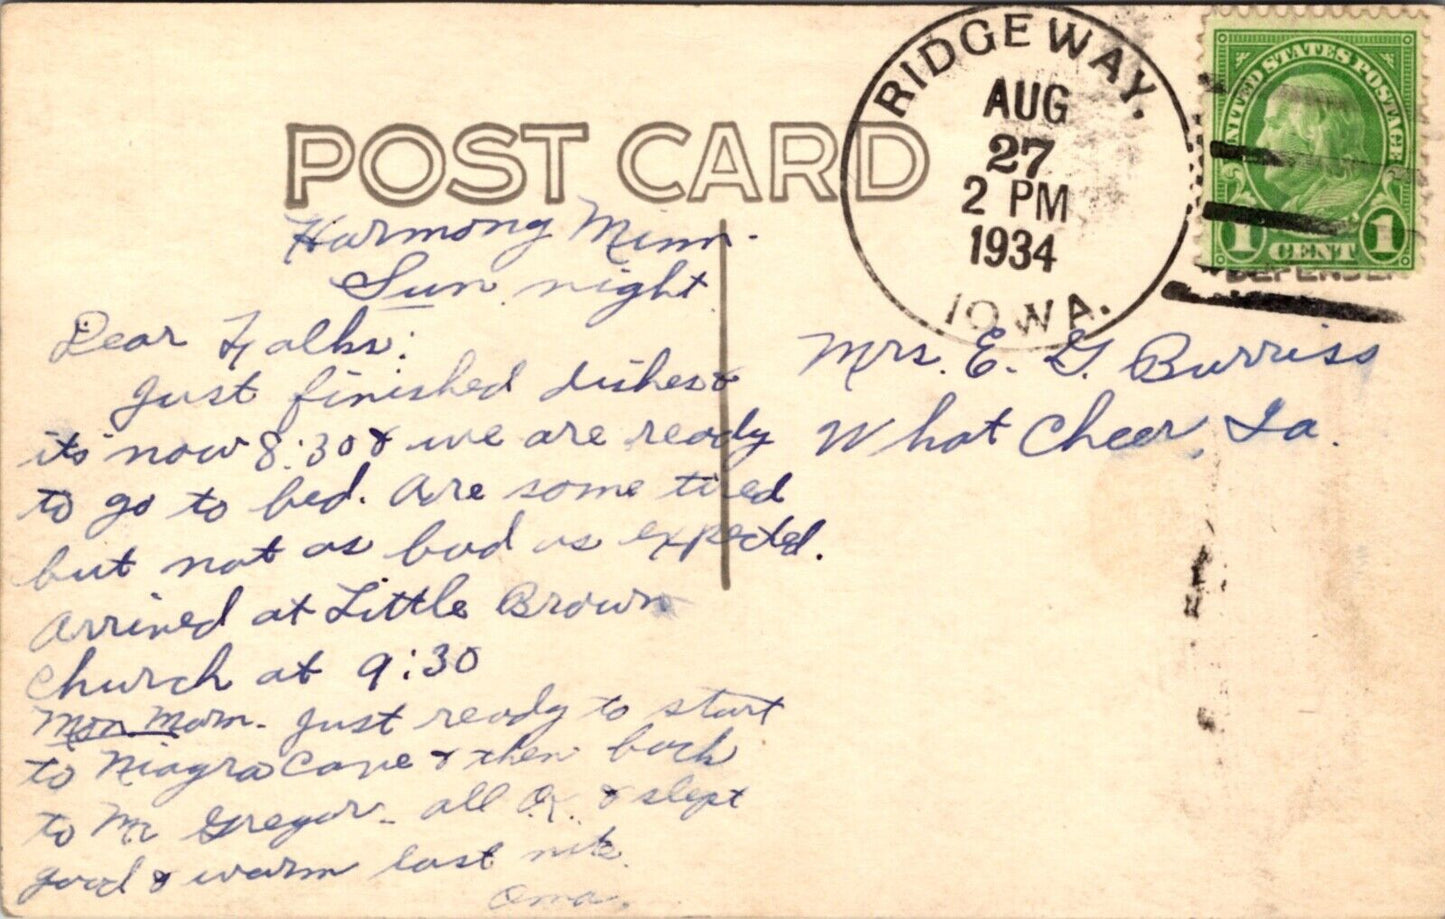 POST CARD
RIDGEWAY.
AUG
27
2 PM
1934
IOWA.
UNITED STATES POSTAGE
1 CENT 1
Harmony Minn.
Sun. night
Dear Folks:
Just finished dishes &
it's now 8:30 & we are ready
to go to bed. Are some tired
but not as bad as expected.
Arrived at Little Brown
Church at 9:30
Mon Morn. Just ready to start
to Niagra Cave & then back
to Mc Gregor - all O.K. & slept
good & warm last nite.
Oma.
Mrs. E. G. Burriss
What Cheer, Ia.